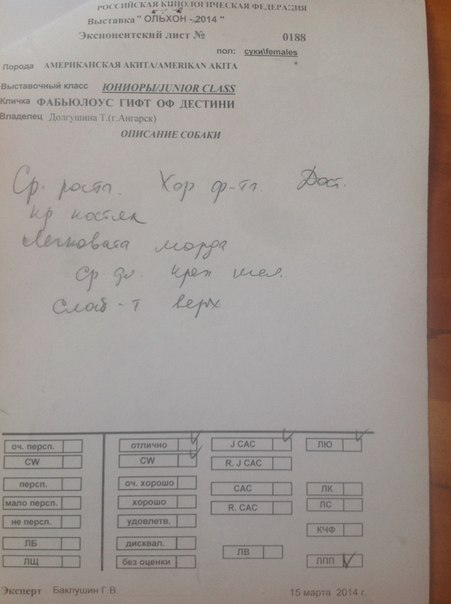 РОССИЙСКАЯ КИНОЛОГИЧЕСКАЯ ФЕДЕРАЦИЯ
Выставка " ОЛЬХОН - 2014 "
Экспонентский лист № 0188
пол: суки\females
Порода АМЕРИКАНСКАЯ АКИТА/AMERIKAN AKITA
Выставочный класс ЮНИОРЫ/JUNIOR CLASS
Кличка ФАБЬЮЛОУС ГИФТ ОФ ДЕСТИНИ
Владелец Долгушина Т.(г.Ангарск)
ОПИСАНИЕ СОБАКИ
Ср. роста. Хор ф-та. Дост.
кр костяк
Легковата морда
Ср дл. креп шея.
Слаб-т верх
оч. персп. отлично J CAC ЛЮ
CW CW R. J CAC
персп. оч. хорошо CAC ЛК
мало персп. хорошо R. CAC ЛС
не персп. удовлетв. КЧФ
ЛБ дисквал. ЛВ
ЛЩ без оценки ЛПП
Эксперт Баклушин Г.В. 15 марта 2014 г.